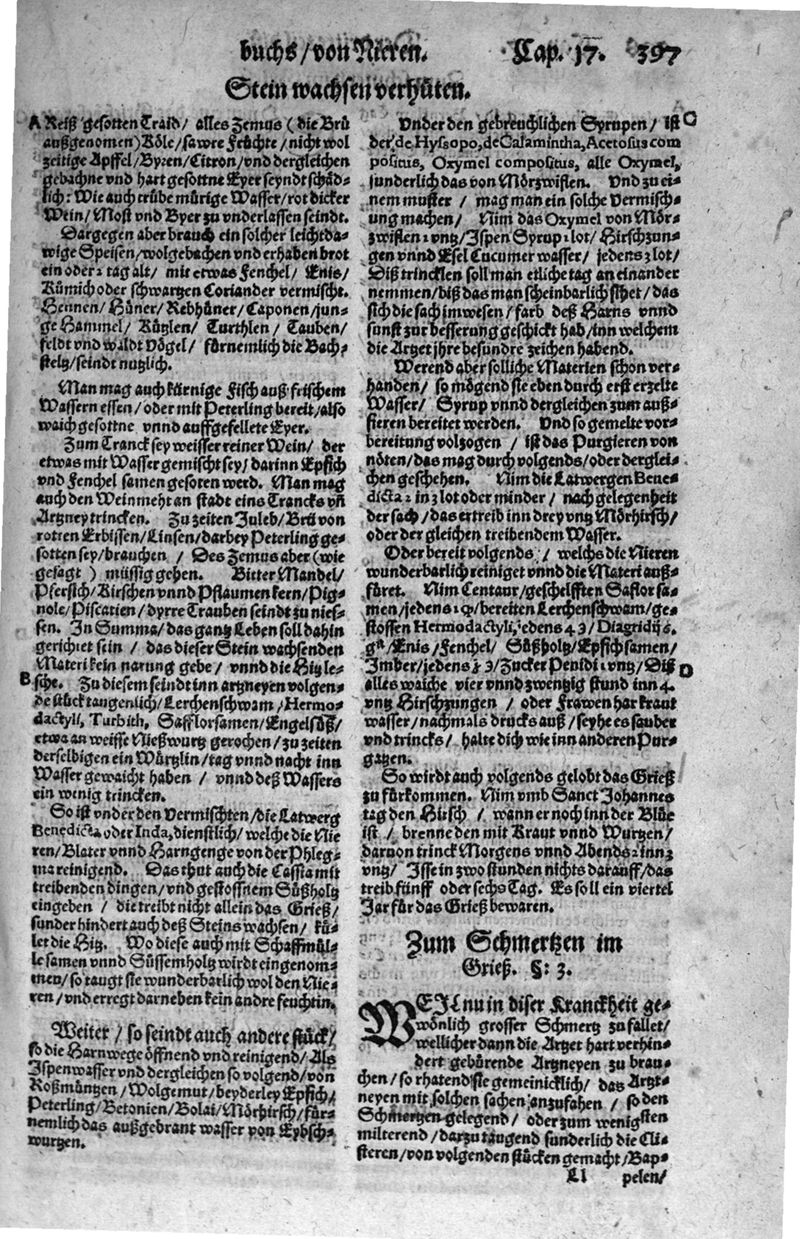 buchs/von Nieren. Cap. 17. 397
Stein wachsen verhüten.
A Reiß gesotten Traid/ alles Zemus (die Brü
außgenomen) Köle/sawre Früchte/nicht wol
zeitige Apffel/Byren/Citron/vnd dergleichen
gebachne vnd hart gesottne Eyer seyndt schäd-
lich: Wie auch trübe mürige Wasser/rot dicker
Wein/Most vnd Byer zu vnderlassen seindt.
Dargegen aber brauch ein solcher leichtda-
wige Speisen/wolgebachen vnd erhaben brot
ein oder 2 tag alt/ mit etwas Fenchel/ Enis/
Kümich oder schwartzen Coriander vermischt.
Hennen/Hüner/Rebhüner/Caponen/jun-
ge Hammel/ Kützlen/ Turthlen/ Tauben/
feldt vnd waldt Vögel/ fürnemlich die Bach-
steltz/seindt nutzlich.
Man mag auch kürnige Fisch auß frischem
Wassern essen/oder mit Peterling bereit/also
waich gesottne vnnd auffgefellete Eyer.
Zum Tranck sey weisser reiner Wein/ der
etwas mit Wasser gemischt sey/darinn Epfich
vnd Fenchel samen gesoten werd. Man mag
auch den Weinmeht an stadt eins Trancks vñ
Artzney trincken. Zu zeiten Juleb/Brü von
rotren Erbissen/Linsen/darbey Peterling ge-
sotten sey/brauchen/ Des Zemus aber (wie
gesagt) müssig gehen. Bitter Mandel/
Pfersich/Kirschen vnnd Pflaumen kern/Pig-
nole/Piscatien/dyrre Trauben seindt zu nies-
sen. In Summa/das gantz Leben soll dahin
gerichtet sein/ das dieser Stein wachsenden
Materi kein narung gebe/ vnnd die Hitz le-
B sche. Zu diesem seindt inn artzneyen volgen-
de stück taugenlich/Lerchenschwam/Hermo-
dactyli, Turbith, Safflorsamen/Engelsüß/
etwa an weisse Nießwurtz gerochen/zu zeiten
derselbigen ein Würtzlin/tag vnnd nacht inn
Wasser gewaicht haben/ vnnd deß Wassers
ein wenig trincken.
So ist vnder den Vermischten/die Latwerg
Benedicta oder Inda, dienstlich/welche die Nie
ren/Blater vnnd Harngenge von der Phleg-
ma reinigend. Das thut auch die Cassia mit
treibenden dingen/vnd gestossnem Süßholtz
eingeben/ die treibt nicht allein das Grieß/
sunder hindert auch deß Steins wachsen/ kü-
let die Hitz. Wo diese auch mit Schaffmül-
le samen vnnd Süssemholtz wirdt eingenom-
men/so taugt sie wunderbarlich wol den Nie-
ren/vnd erregt darneben kein andre feuchtin.
Weiter/so seindt auch andere stück/
so die Harnwege öffnend vnd reinigend/Als
Ispenwasser vnd dergleichen so volgend/von
Roßmüntzen/Wolgemut/beyderley Epfich/
Peterling/Betonien/Bolai/Mörhirsch/für-
nemlich das außgebrant wasser von Eybsch-
wurtzen.
Vnder den gebreuchlichen Syrupen/ ist C
der/ de Hyssopo, de Calamintha, Acetosus com
positus, Oxymel compositus, alle Oxymel,
sunderlich das von Mörzwiflen. Vnd zu ei-
nem muster/ mag man ein solche Vermisch-
ung machen/ Nim das Oxymel von Mör-
zwiflen 1 vntz/Ispen Syrup 1 lot/Hirschzun-
gen vnnd Esel Cucumer wasser/ jedens 2 lot/
Diß trincklen soll man etliche tag an einander
nemmen/biß das man scheinbarlich sihet/das
sich die sach im wesen/farb deß Harns vnnd
sunst zur besserung geschickt hab/inn welchem
die Artzet jhre besundre zeichen habend.
Werend aber solliche Materien schon ver-
handen/ so mögend sie eben durch erst erzelte
Wasser/ Syrup vnnd dergleichen zum auß-
füeren bereitet werden. Vnd so gemelte vor-
bereitung volzogen/ ist das Purgieren von
nöten/das mag durch volgends/oder derglei-
chen geschehen. Nim die Latwergen Bene-
dicta 1 in 2 lot oder minder/ nach gelegenheit
der sach/das ertreib inn drey vntz Mörhirsch/
oder der gleichen treibendem Wasser.
Oder bereit volgends/ welchs die Nieren
wunderbarlich reiniget vnnd die Materi auß-
füret. Nim Centaur/geschelfften Saflor sa-
men/jedens 1 /bereiten Lerchenschwam/ge-
stossen Hermodactyli, jedens 4 ʒ/Diagridij 5.
gª/Enis/Fenchel/ Süßholtz/Epfich samen/
Imber/jedens ʒ/Zucker Penidi 1 vntz/Diß D
alles waiche vier vnnd zwentzig stund inn 4.
vntz Hirschzungen/ oder Frawen har kraut
wasser/nachmals drucks auß/seyhe es sauber
vnd trincks/ halte dich wie inn anderen Pur-
gatzen.
So wirdt auch volgends gelobt das Grieß
zu fürkommen. Nim vmb Sanct Johannes
tag den Hirsch/ wann er noch inn der Blüe
ist/ brenne den mit Kraut vnnd Wurtzen/
daruon trinck Morgens vnnd Abends 2 inn 3
vntz/ Isse in zwo stunden nichts darauff/das
treib fünff oder sechs Tag. Es soll ein viertel
Jar für das Grieß bewaren.
Zum Schmertzen im
Grieß. §: 3.
WEIL nu in diser Kranckheit ge-
wönlich grosser Schmertz zu fallet/
wellicher dann die Artzet hart verhin-
dert gebürende Artzneyen zu brau-
chen/so rhatend sie gemeinicklich/ das Artzt-
neyen mit solchen sachen anzufahen/ so den
Schmertzen gelegend/ oder zum wenigsten
milterend/darzu taugend sunderlich die Cli-
steren/von volgenden stücken gemacht/Bap-
Ll pelen/